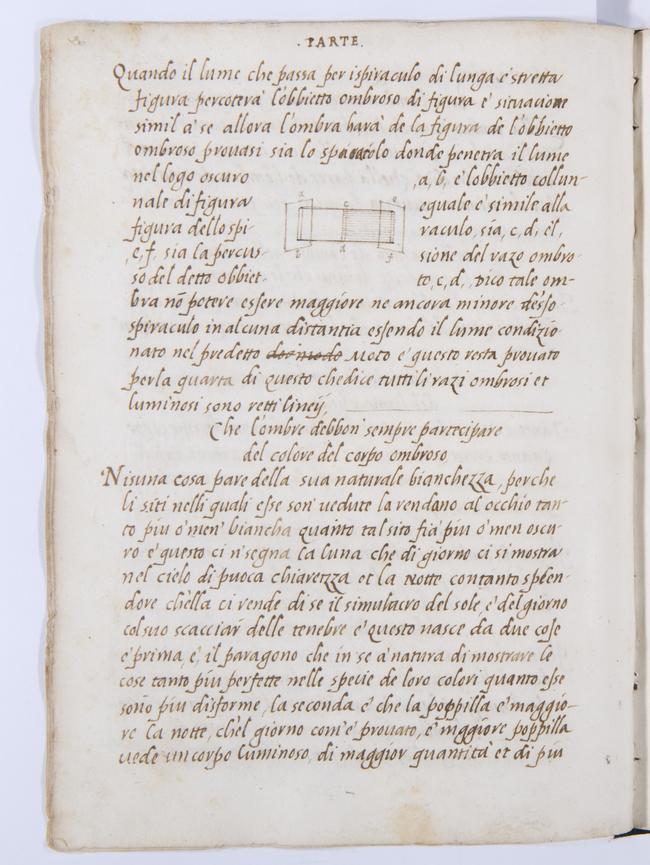 . PARTE .
Quando il lume che passa per ispiraculo di lunga e stretta
figura percoterà l'obbietto ombroso di figura e' situatione
simil à se allora l'ombra harà de la figura de l'obbietto
ombroso provasi sia lo spiracolo donde penetra il lume
nel logo oscuro ,a, b, e' l'obbietto collun-
nale di figura equale e' simile alla
figura dello spi- raculo, sia, c, d, el,
e, f, sia la percus- sione del razo ombro-
so del detto obbiet- to, c, d, dico tale om-
a c e
b d f
bra nō potere essere maggiore ne ancora minore desso
spiraculo in alcuna distantia essendo il lume condizio-
nato nel predetto moto e' questo resta provato
per la quarta di questo che dice tutti li razi ombrosi et
luminosi sono retti lineÿ,
Che l'ombre debbon' sempre partecipare
del colore del corpo ombroso
Nisuna cosa pare della sua naturale bianchezza, perche
li siti nelli quali esse son' vedute la rendano al occhio tan-
to piu o' men' biancha quanto tal sito fia piu o' men oscu-
ro e' questo ci n'segna la luna che di giorno ci si mostra
nel cielo di puoca chiaretzza et la notte con tanto splen-
dore ch'ella ci rende di se il simulacro del sole, e' del giorno
col suo scacciar delle tenebre e' questo nasce da due cose
e' prima, é, il paragone che in se a' natura di mostrare le
cose tanto piu perfette nelle specie de loro colori quanto esse
sono piu disforme, la seconda e' che la poppilla e' maggio-
re la notte, che'l giorno com'e' provato, e' maggiore poppilla
vede un corpo luminoso, di maggior quantità et di piu